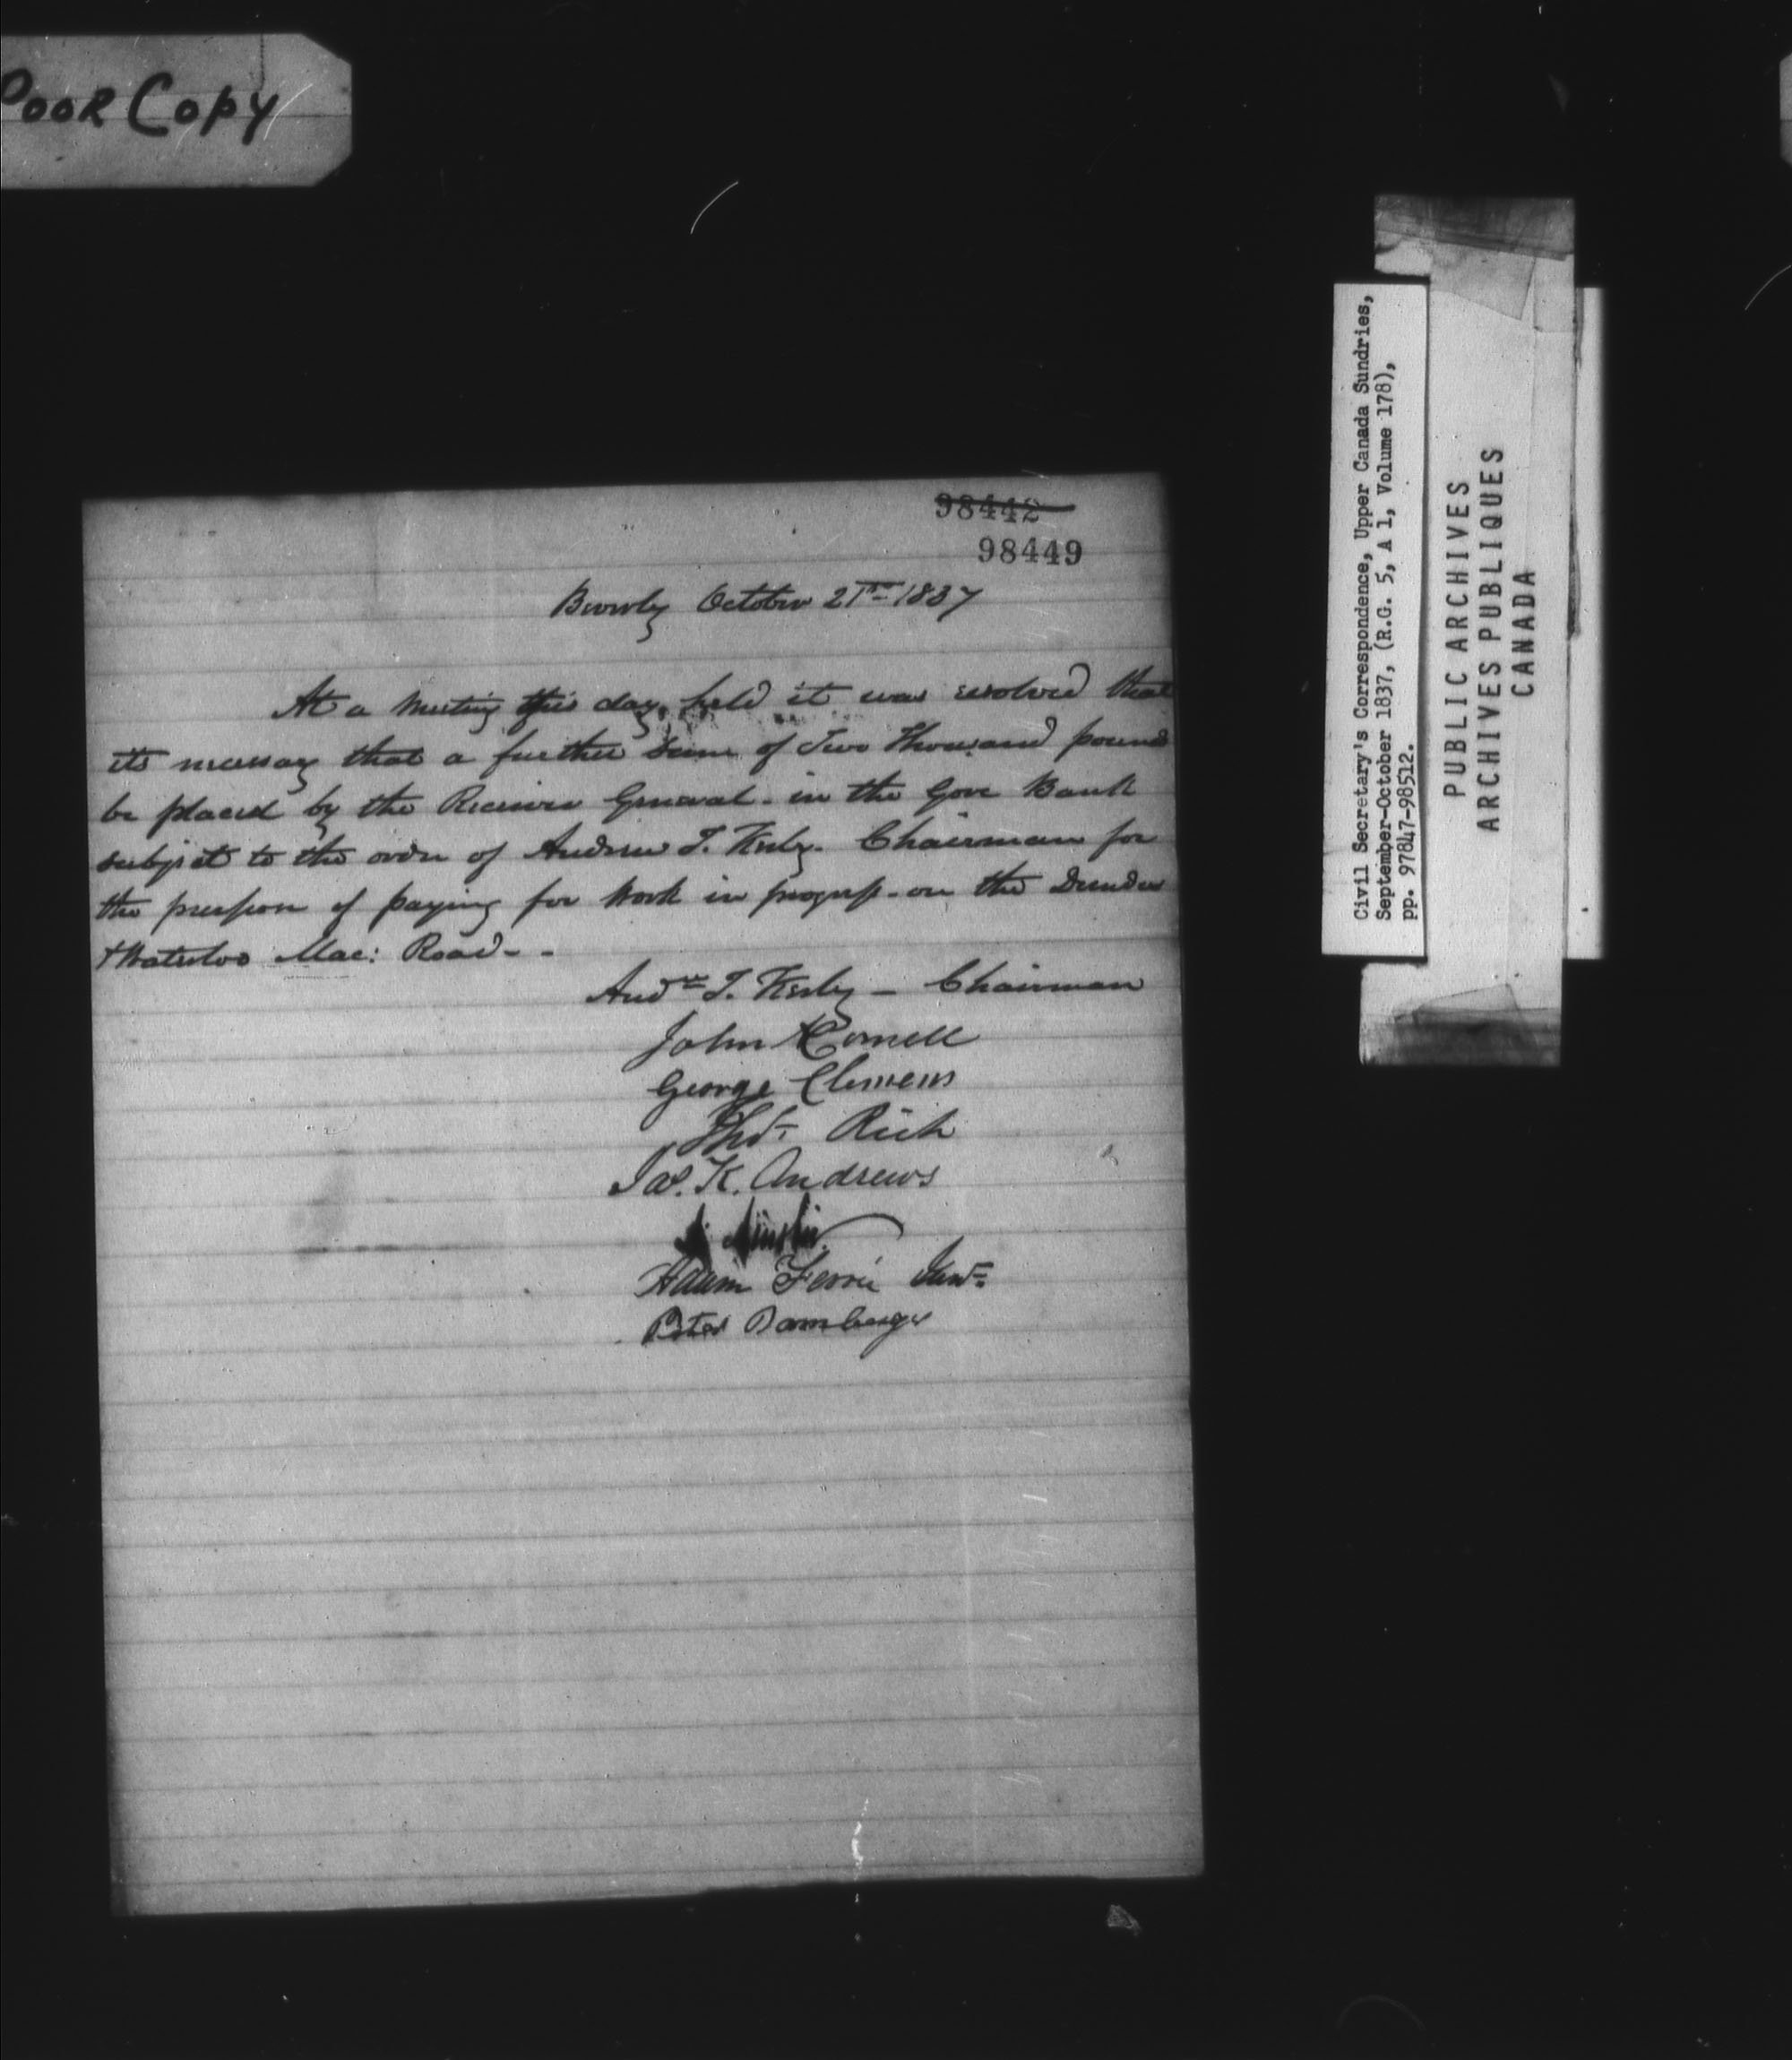 Poor Copy
98442
98449
Beverly October 21st 1837
At a Meeting this day held it was resolved that
its necessary that a further Sum of Two Thousand pounds
be placed by the Receiver General - in the Gore Bank
subject to the order of Andrew T. Kerby. Chairman for
the purpose of paying for Work in progress - on the Dundas
& Waterloo Mac: Road - -
Andw T. Kerby - Chairman
John Cornell
George Clemens
Thos Rich
Jas. K. Andrews
Ainslie
Adam Ferrie Junr
Peter Bamberger
Civil Secretary's Correspondence, Upper Canada Sundries,
September-October 1837, (R.G. 5, A 1, Volume 178),
pp. 97847-98512.
PUBLIC ARCHIVES
ARCHIVES PUBLIQUES
CANADA